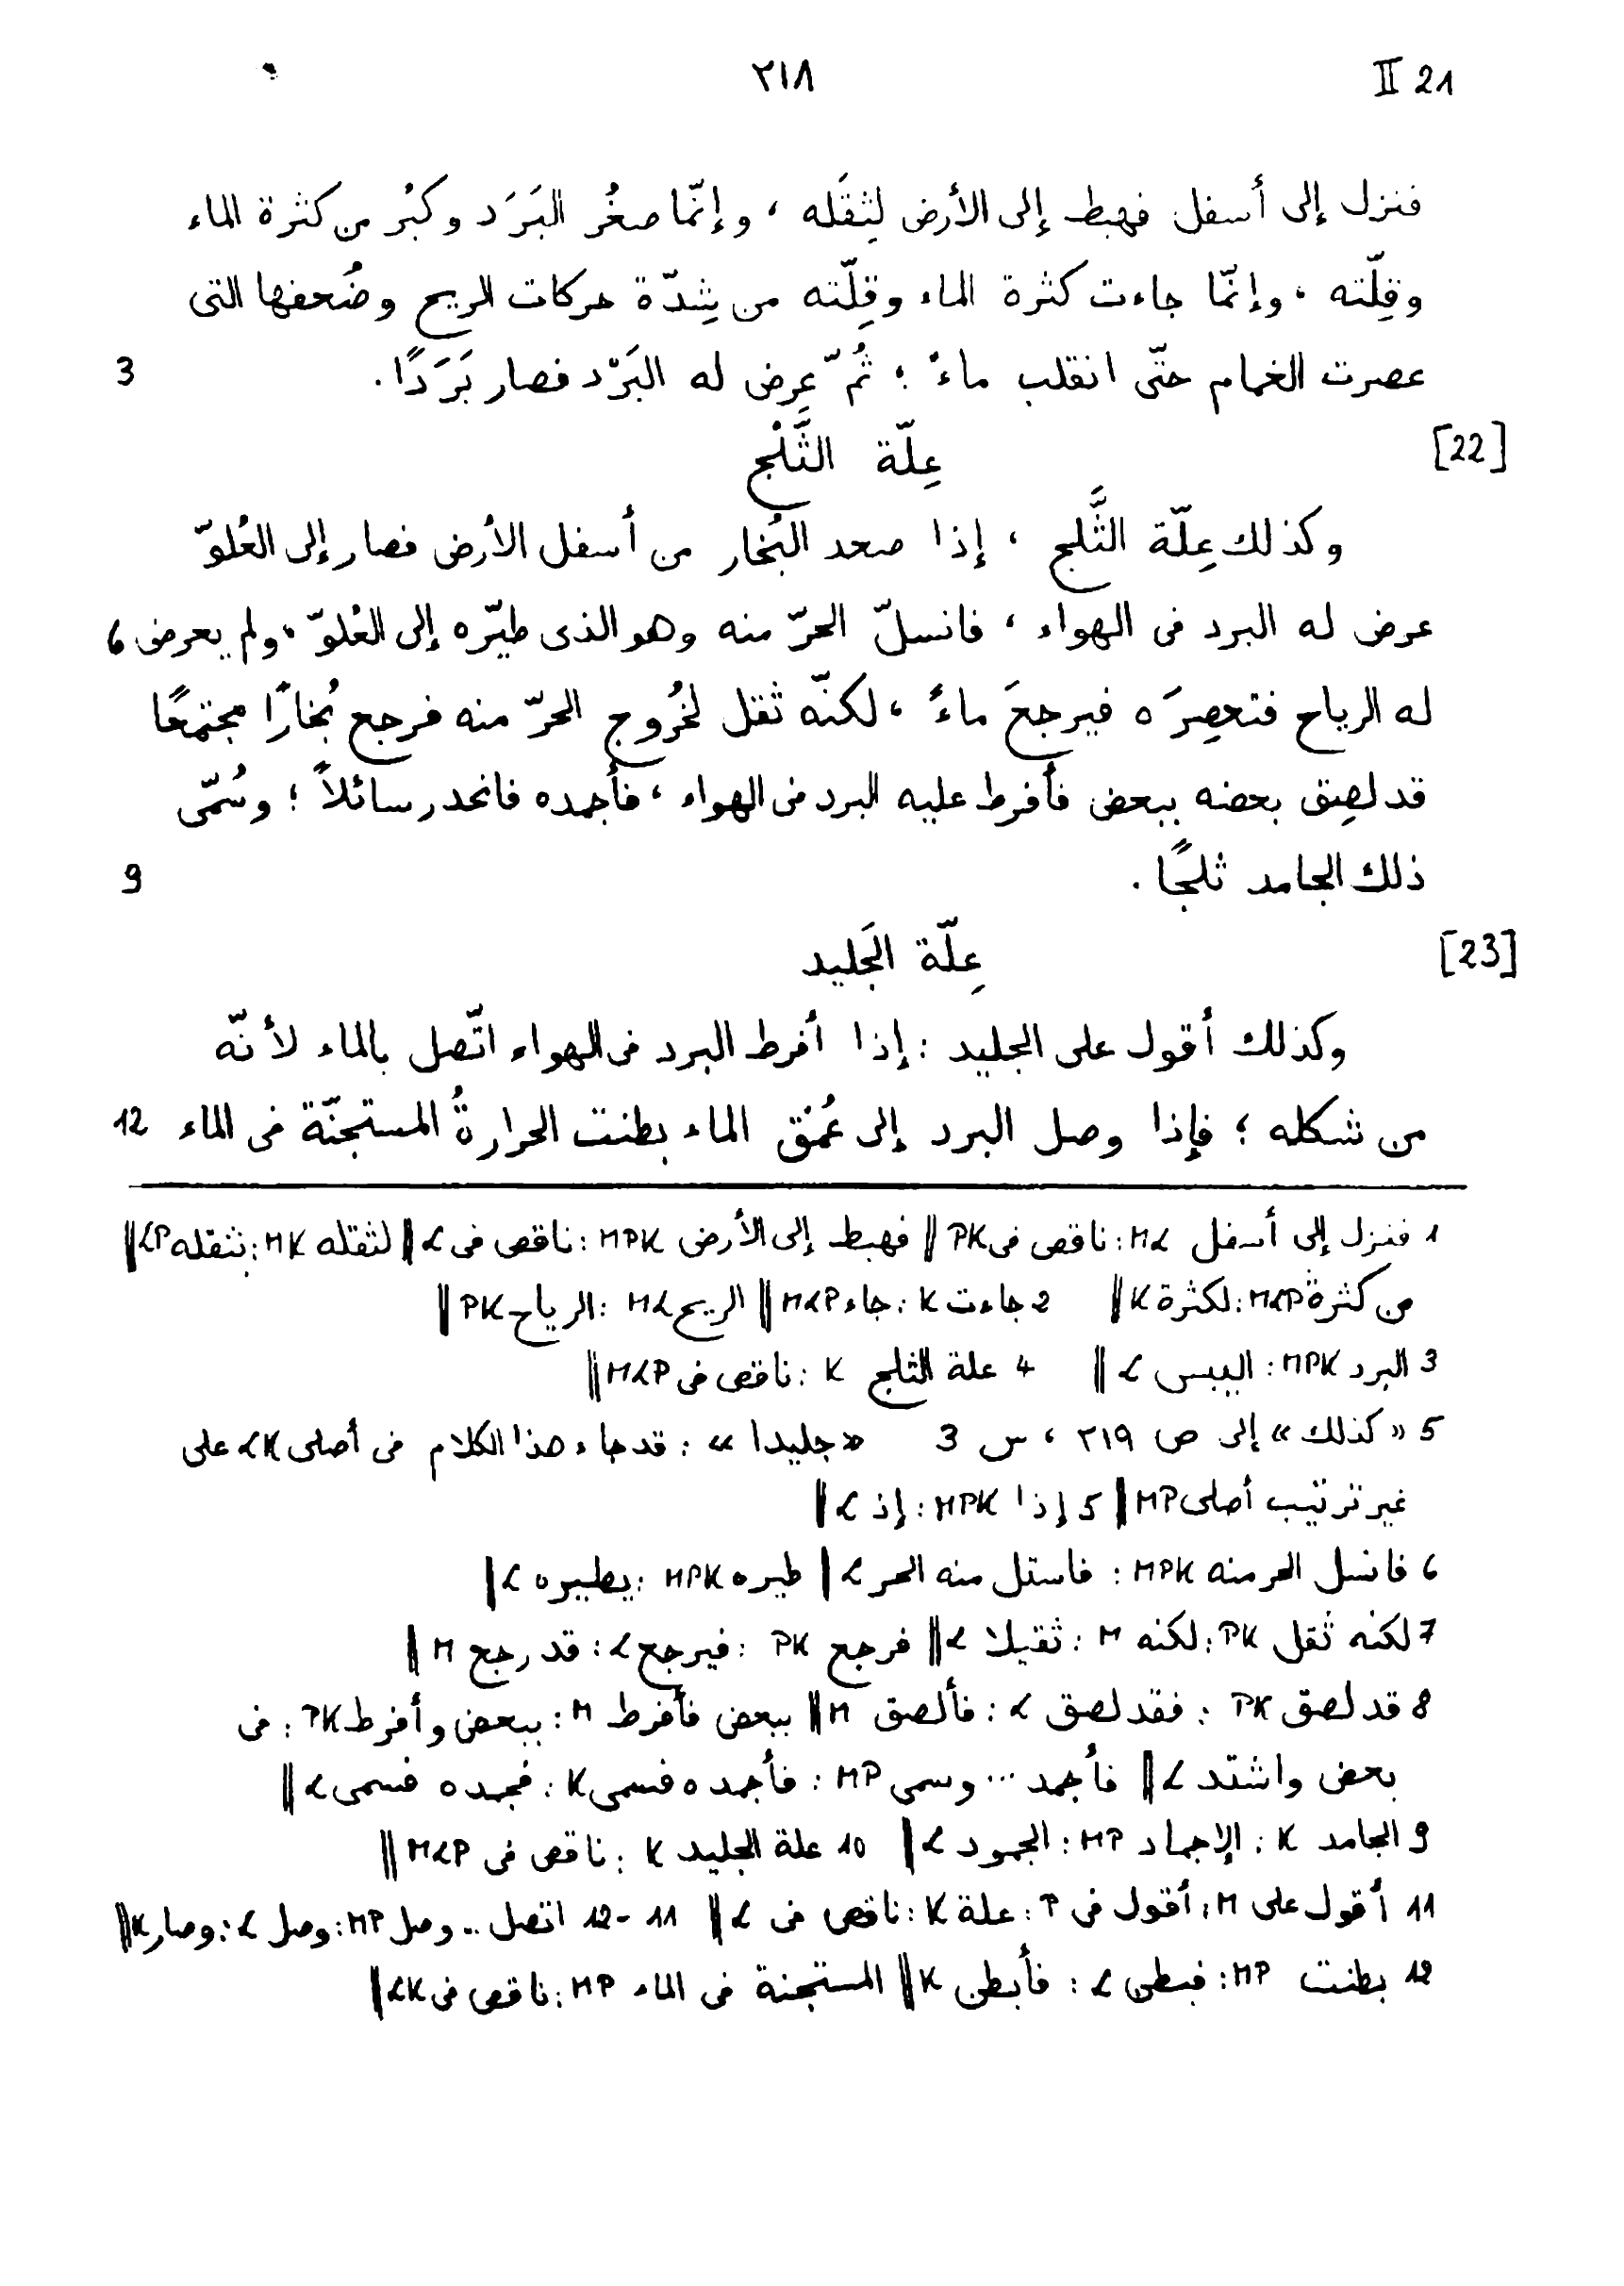 II 21
٢١٨
فنزل إلى أسفل فهبط إلى الأرض لِثِقَله ، وإنّما صغُر البَرَد وكبُر من كثرة الماء
وقِلّته ، وإنّما جاءت كثرة الماء وقِلّته من شِدّة حركات الريح وضُعفها التى
عصرت الغمام حتّى انقلب ماءً ؛ ثُمّ عرِض له البَرْد فصار بَرَدًا . 3
[22] عِلّة الثَّلْج
وكذلك عِلّة الثَّلج ، إذا صعد البُخار من أسفل الأرض فصار إلى العُلوّ
عرض له البرد فى الهواء ، فانسلّ الحرّ منه وهو الذى طيّره إلى العُلوّ ، ولم يعرض 6
له الرياح فتعصِرَه فيرجعَ ماءً ، لكنّه ثقل لخُروج الحرّ منه فرجع بُخارًا مجتمِعًا
قد لصِق بعضه ببعض فأفرط عليه البرد فى الهواء ، فأجمده فانحدر سائلاً ؛ وسُمّى
ذلك الجامد ثلجًا . 9
[23] عِلّة الجَليد
وكذلك أقول على الجليد : إذا أفرط البرد فى الهواء اتّصل بالماء لأنّه
من شكله ؛ فإذا وصل البرد إلى عُمْق الماء بطنت الحرارةُ المستجنّة فى الماء 12
1 فنزل إلى أسفل ML : ناقص فى PK || فهبط إلى الأرض MPK : ناقص فى L || لثقله MK : بثقله LP ||
من كثرة MLP : لكثرة K || 2 جاءت K : جاء MLP || الريح ML : الرياح PK ||
3 البرد MPK : اليبس L || 4 علة الثلج K : ناقص فى MLP ||
5 «كذلك» إلى ص ٢١٩ ، س 3 «جليدا» : قد جاء هذا الكلام فى أصلى LK على
غير ترتيب أصلى MP || 5 إذا MPK : إذ L ||
6 فانسل الحر منه MPK : فاستل منه الحر L || طيره MPK : يطيره L ||
7 لكنه ثقل PK : لكنه M : ثقيلا L || فرجع PK : فيرجع L : قد رجع M ||
8 قد لصق PK : فقد لصق L : فألصق M || ببعض فأفرط M : ببعض وأفرط PK : فى
بعض واشتد L || فأجمد ... وسمى MP : فأجمده فسمى K : فجمده فسمى L ||
9 الجامد K : الإجماد MP : الجمود L || 10 علة الجليد K : ناقص فى MLP ||
11 أقول على M : أقول فى P : علة K : ناقص فى L || 11-12 اتصل .. وصل MP : وصل L : وصار K ||
12 بطنت MP : فبطن L : فأبطن K || المستجنة فى الماء MP : ناقص فى LK ||